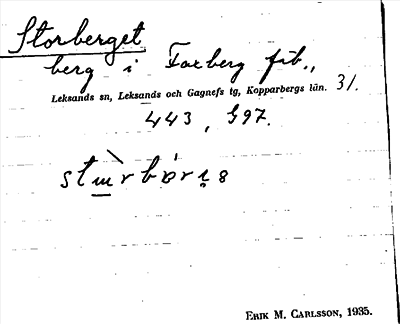 Storberget
berg i Faxberg fäb.,
Leksands sn, Leksands och Gagnefs tg, Kopparbergs län. 31.
443, 597.
ERIK M. CARLSSON, 1935.